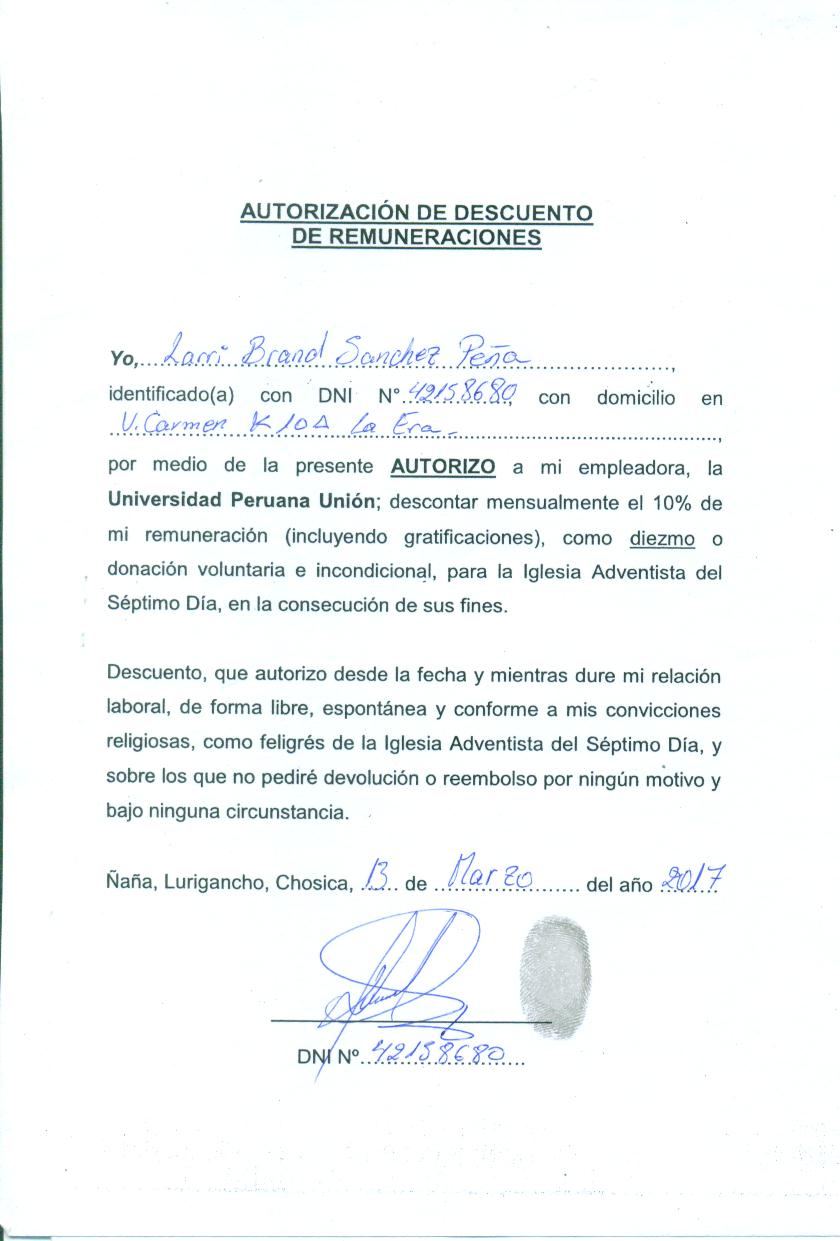 AUTORIZACIÓN DE DESCUENTO
DE REMUNERACIONES
Yo,....Larri Brand Sanchez Peña........................,
identificado(a) con DNI N°.42158680, con domicilio en
V. Carmen K 10A La Era.......................................,
por medio de la presente AUTORIZO a mi empleadora, la
Universidad Peruana Unión; descontar mensualmente el 10% de
mi remuneración (incluyendo gratificaciones), como diezmo o
donación voluntaria e incondicional, para la Iglesia Adventista del
Séptimo Día, en la consecución de sus fines.
Descuento, que autorizo desde la fecha y mientras dure mi relación
laboral, de forma libre, espontánea y conforme a mis convicciones
religiosas, como feligrés de la Iglesia Adventista del Séptimo Día, y
sobre los que no pediré devolución o reembolso por ningún motivo y
bajo ninguna circunstancia.
Ñaña, Lurigancho, Chosica, 13 de Marzo ....... del año 2017
DNI Nº. 42158680